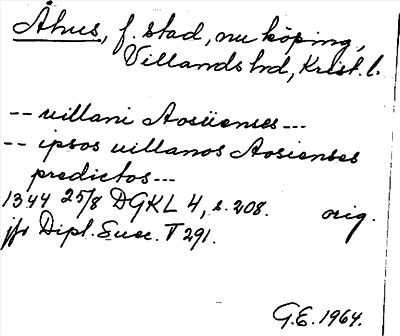 Åhus, f. stad, nu köping,
Villands hd, Krist. l.
-- villani Aosüenses ---
-- ipsos villanos Aosienses
predictos ---
1344 25/8 DGKL 4, s. 208. orig.
jfr Dipl. Suec. V 291.
G.E. 1964.